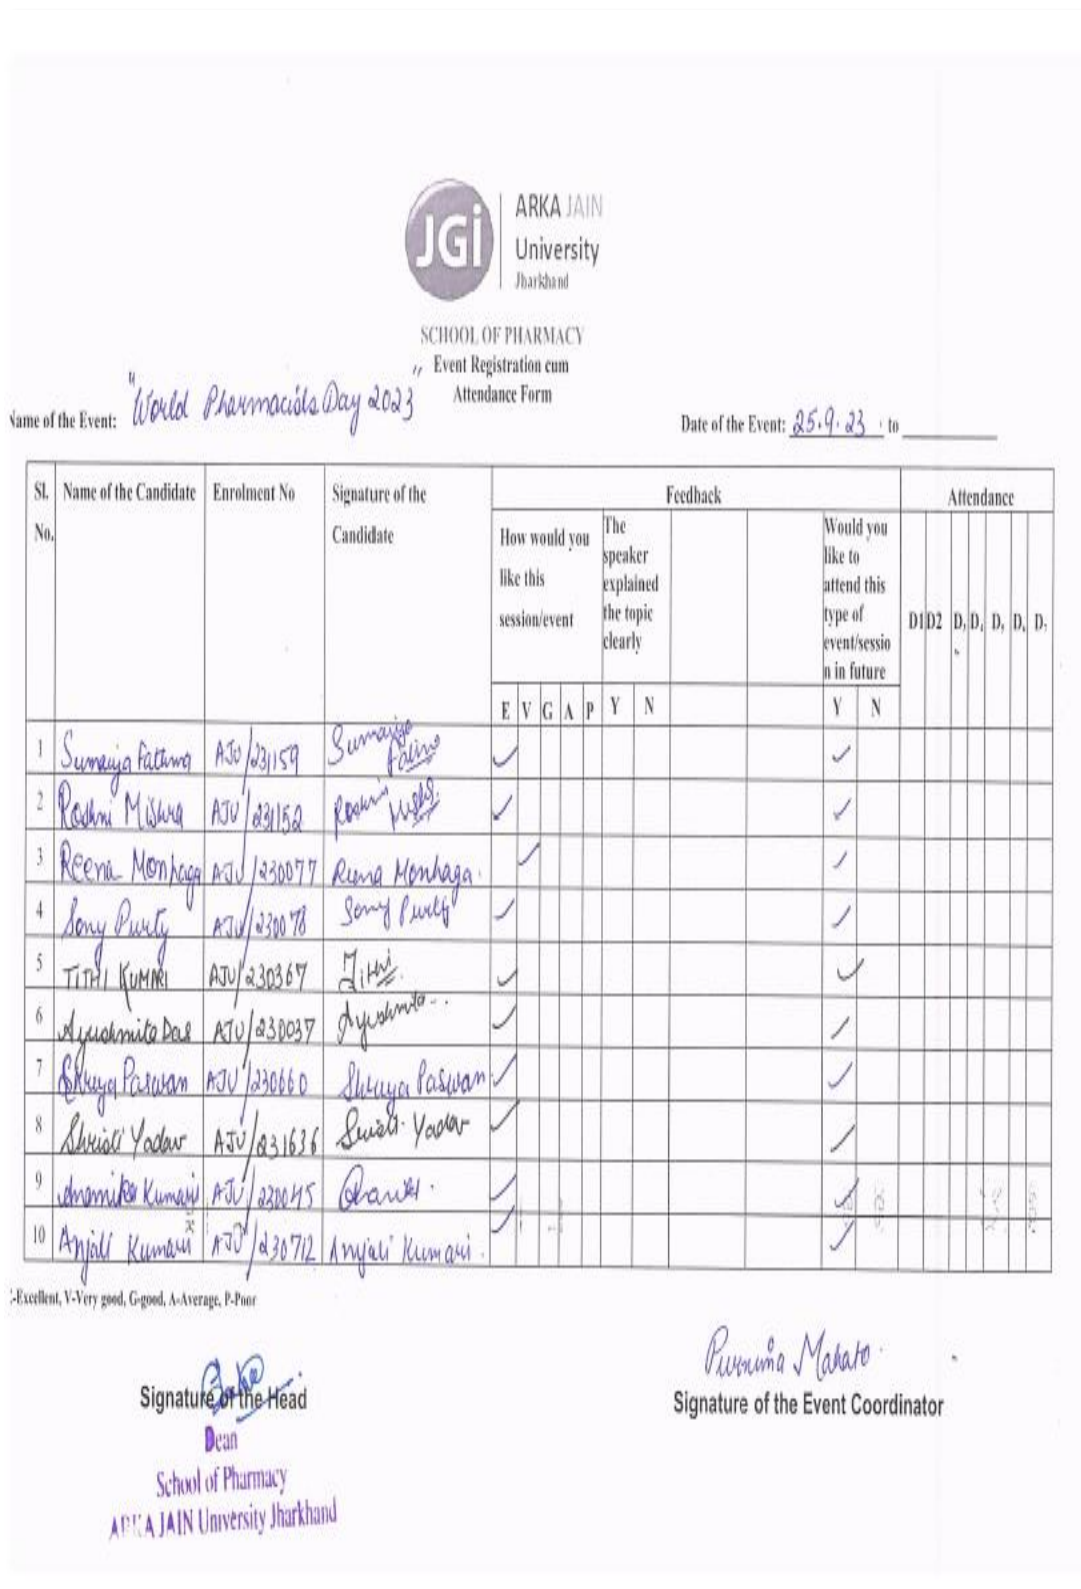 JGi
ARKA JAIN
University
Jharkhand
SCHOOL OF PHARMACY
Event Registration cum
Attendance Form
Name of the Event: "World Pharmacists Day 2023"
Date of the Event: 25.9.23 to
Sl. No. Name of the Candidate Enrolment No Signature of the Candidate Feedback Attendance
How would you like this session/event
The speaker explained the topic clearly
Would you like to attend this type of event/session in future
D1 D2
E V G A P Y N Y N
1 Sumaiya Fatima AJU/231159 Sumaiya
2 Roshni Mishra AJU/231152 Roshni
3 Reena Monhaga AJU/230077 Reena Monhaga.
4 Sony Purty AJU/230078 Sony Purty
5 TITHI KUMARI AJU/230367 Tithi
6 Ayushmita Das AJU/230037 Ayushmita
7 Shreya Paswan AJU/230660 Shreya Paswan
8 Shristi Yadav AJU/231636 Yadav
9 Anamika Kumari AJU/230045
10 Anjali Kumari AJU/230712 Anjali Kumari.
-Excellent, V-Very good, G-good, A-Average, P-Poor
Purnima Mahato
Signature of the Head
Signature of the Event Coordinator
Dean
School of Pharmacy
ARKA JAIN University Jharkhand